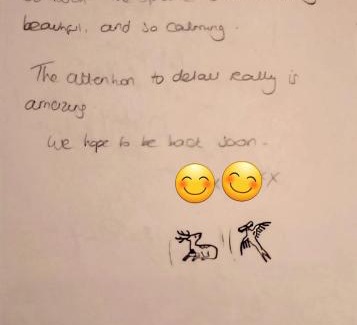 beautiful, and so calming.
The attention to detail really is
amazing
We hope to be back soon.
x